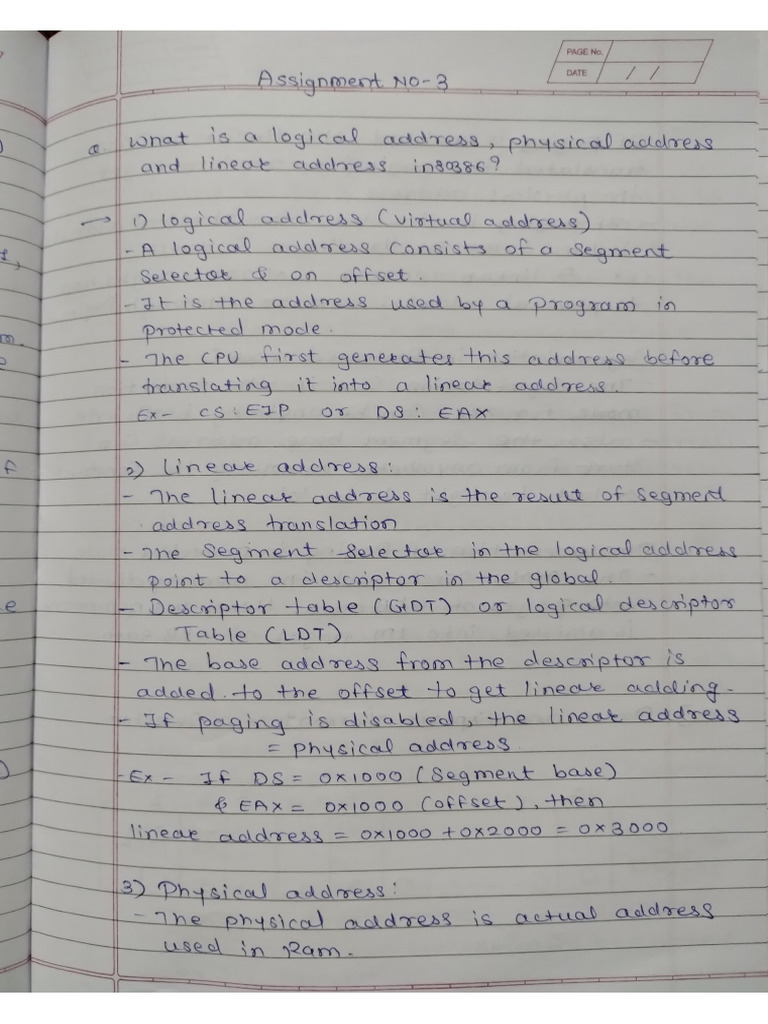 PAGE No.
DATE / /
Assignment No-3
Q. What is a logical address, physical address
and linear address in 80386?
→ 1) logical address (virtual address)
- A logical address consists of a segment
selector & on offset.
- It is the address used by a program in
protected mode.
- The CPU first generates this address before
translating it into a linear address.
Ex- CS:EIP or DS:EAX
2) linear address:
- The linear address is the result of segment
address translation
- The segment selector in the logical address
point to a descriptor in the global.
- Descriptor table (GDT) or logical descriptor
Table (LDT)
- The base address from the descriptor is
added to the offset to get linear adding.
- If paging is disabled, the linear address
= physical address.
- Ex - If DS = 0x1000 (segment base)
& EAX = 0x1000 (offset), then
linear address = 0x1000 + 0x2000 = 0x3000
3) Physical address:
- The physical address is actual address
used in Ram.